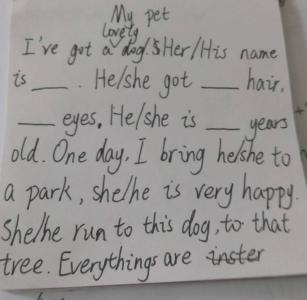 My pet
I've got a lovely dog. Her/His name
is ___. He/she got ___ hair,
___ eyes. He/she is ___ years
old. One day, I bring he/she to
a park, she/he is very happy.
She/he run to this dog, to that
tree. Everythings are inster